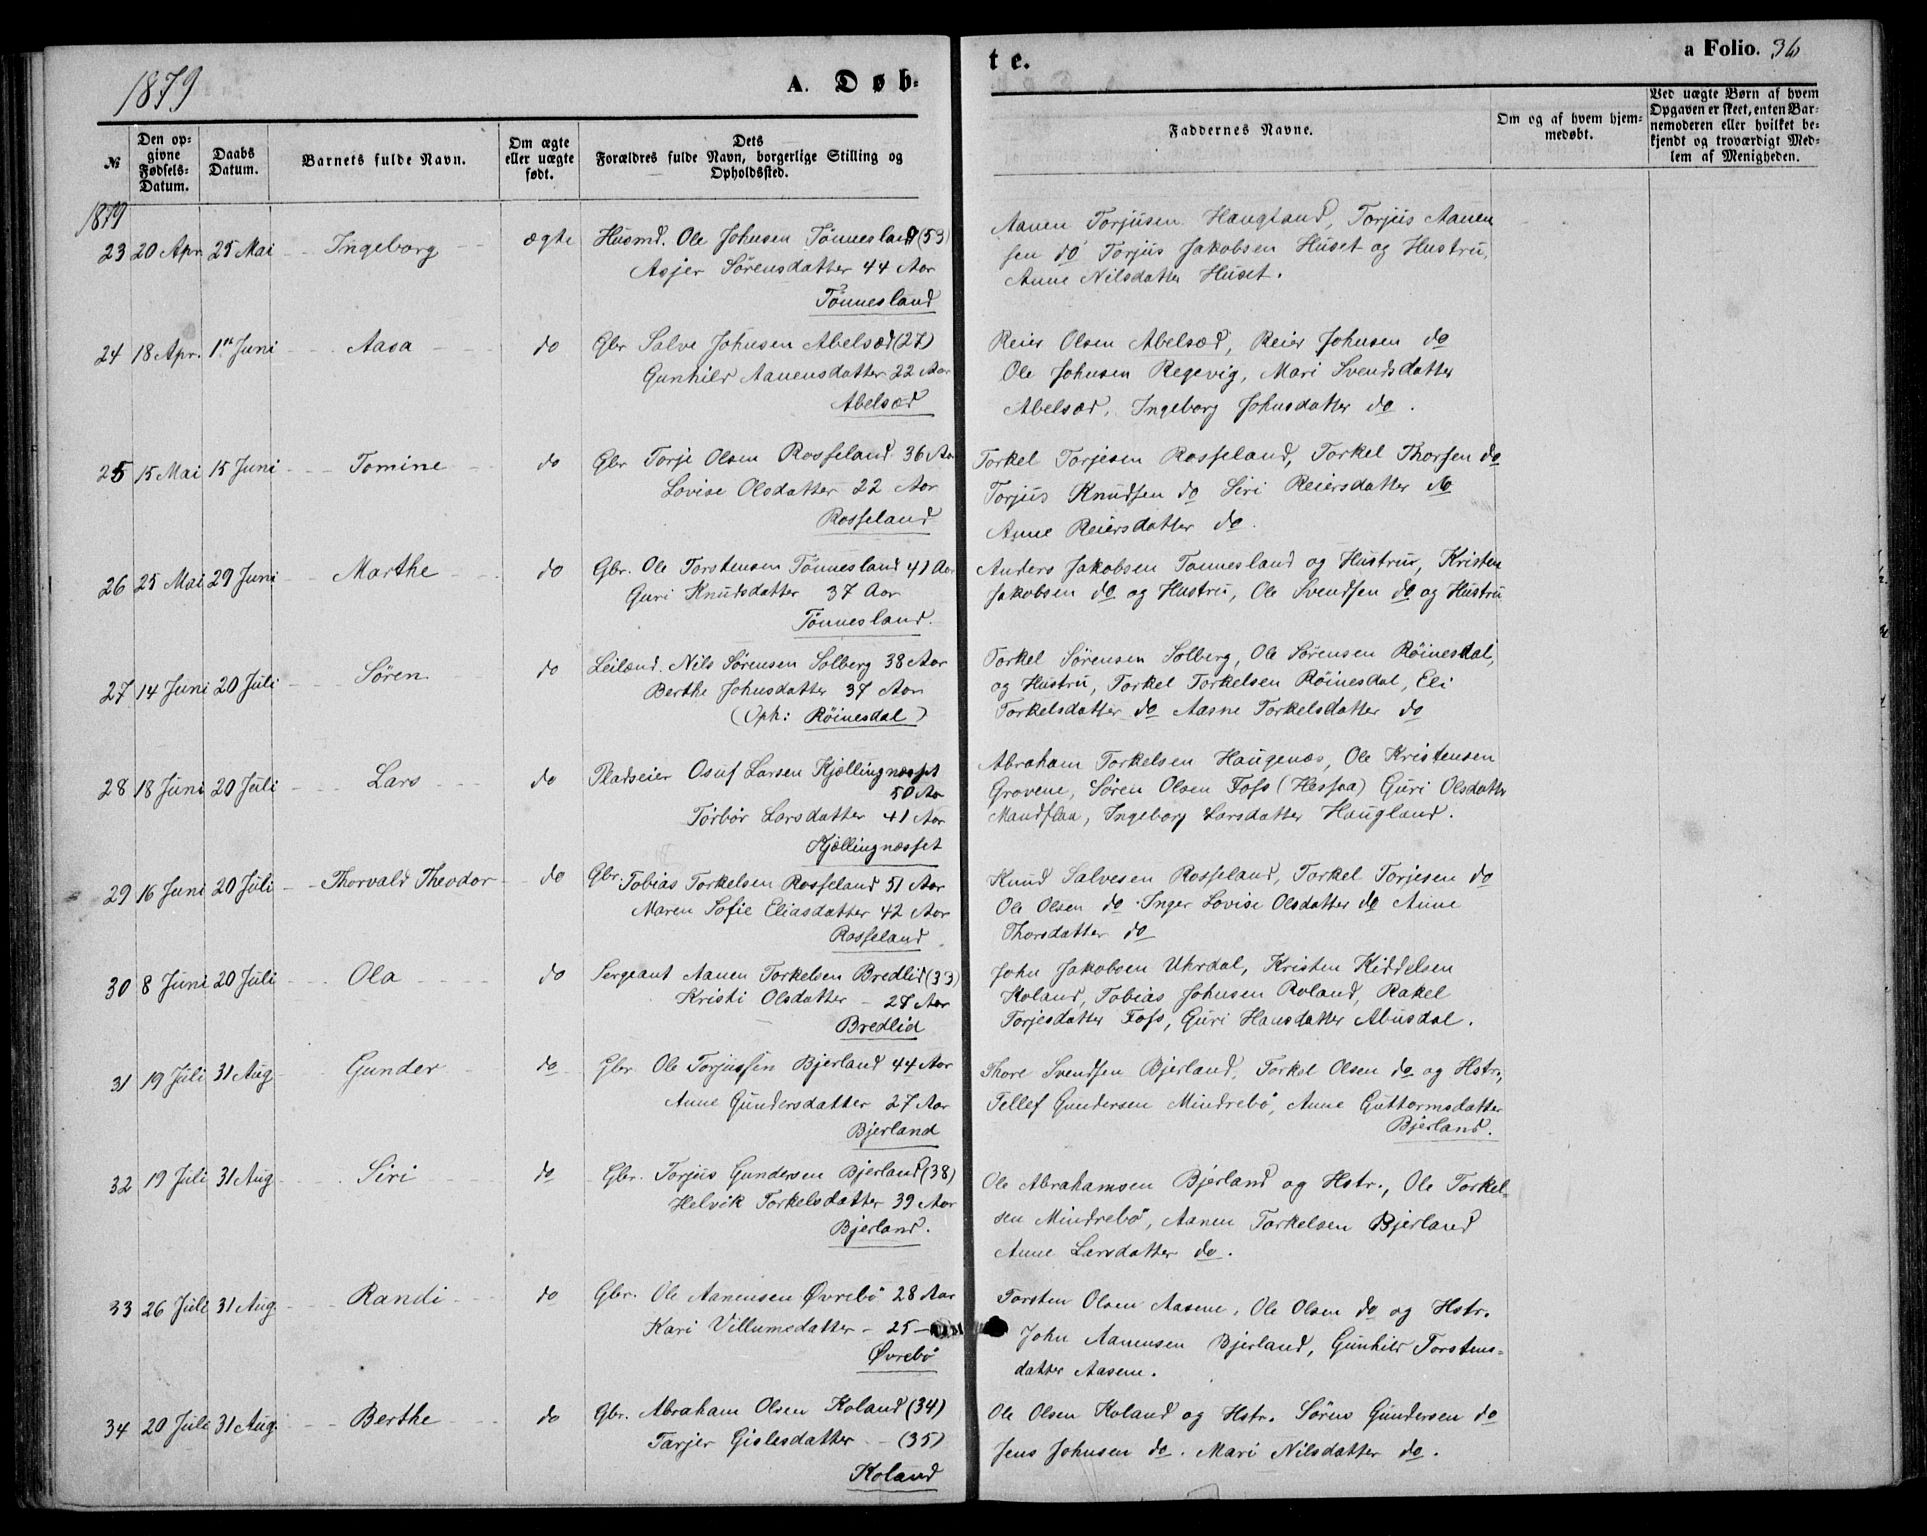 1879
A. Døb-
te.
a Folio. 36
№
Den opgivne Fødsels-Datum.
Daabs Datum.
Barnets fulde Navn.
Om ægte eller uægte født.
Dets Forældres fulde Navn, borgerlige Stilling og Opholdssted.
Faddernes Navne.
Om og af hvem hjemmedøbt.
Ved uægte Børn af hvem Opgaven er skeet, enten Barnemoderen eller hvilket bekjendt og troværdigt Medlem af Menigheden.
1879
23 20 Apr. 25 Mai Ingeborg ægte Husmd. Ole Johnsen Tönnesland (53)
Asjer Sörensdatter 44 Aar
Tönnesland
Aanen Torjusen Haugland, Torjus Aanen
sen do Torjus Jakobsen Huset og Hustru,
Anne Nilsdatter Huset.
24 18 Apr. 1ste Juni Aasa do Gbr Salve Johnsen Abelsæd (27)
Gunhild Aanensdatter 22 Aar
Abelsæd
Reier Olsen Abelsæd, Reier Johnsen do
Ole Johnsen Regevig, Mari Svendsdatter
Abelsæd, Ingeborg Johnsdatter do.
25 15 Mai 15 Juni Tomine do Gbr Torje Olsen Rosseland 36 Aar
Lovise Olsdatter 22 Aar
Rosseland
Torkel Torjesen Rosseland, Torkel Thorsen do
Torjus Knudsen do Siri Reiersdatter do
Anne Reiersdatter do.
26 25 Mai 29 Juni Marthe do Gbr. Ole Torstensen Tönnesland 41 Aar
Guri Knudsdatter 37 Aar
Tönnesland.
Anders Jakobsen Tonnesland og Hustrur, Kristen
Jakobsen do og Hustru, Ole Svendsen do og Hustru
27 14 Juni 20 Juli Søren do Leilænd. Nils Sørensen Solberg 38 Aar
Berthe Johnsdatter 37 Aar
(Oph: Röinesdal)
Torkel Sørensen Solberg, Ole Sørensen Röinesdal,
og Hustru, Torkel Torkelsen Röinesdal, Eli
Torkelsdatter do Aasne Torkelsdatter do
28 18 Juni 20 Juli Lars do Pladseier Osuf Larsen Kjællingnæsset
50 Aar
Törbör Larsdatter 41 Aar
Kjællingnæsset
Abraham Torkelsen Haugenæs, Ole Kristensen
Grovene, Sören Olsen Foss (Hessaa) Guri Olsdatter
Mandflaa, Ingeborg Larsdatter Haugland.
29 16 Juni 20 Juli Thorvald Theodor do Gbr. Tobias Torkelsen Rosseland 51 Aar
Maren Sofie Eliasdatter 42 Aar
Rosseland
Knud Salvesen Rosseland, Torkel Torjesen do
Ole Olsen do. Inger Lovise Olsdatter do Anne
Thorsdatter do
30 8 Juni 20 Juli Ola do Sergeant Aanen Torkelsen Bredlid (33)
Kristi Olsdatter – 27 Aar
Bredlid
John Jakobsen Uhrdal, Kristen Kiddelsen
Koland, Tobias Johnsen Roland, Rakel
Torjesdatter Foss, Guri Hansdatter Abusdal.
31 19 Juli 31 Aug Gunder do Gbr Ole Torjussen Bjerland 44 Aar
Anne Gundersdatter 27 Aar
Bjerland
Thore Svendsen Bjerland, Torkel Olsen do og Hstr,
Tellef Gundersen Mindrebö, Anne Guttormsdatter
Bjerland.
32 19 Juli 31 Aug Siri do Gbr. Torjus Gundersen Bjerland (38)
Helvik Torkelsdatter 39 Aar
Bjerland.
Ole Abrahamsen Bjerland og Hstr., Ole Torkel-
sen Mindrebö, Aanen Torkelsen Bjerland
Anne Larsdatter do.
33 26 Juli 31 Aug. Randi do Gbr. Ole Aanensen Øvrebö 28 Aar
Kari Villumsdatter – 25 –
Øvrebö
Torsten Olsen Aasene, Ole Olsen do og Hstr.
John Aanensen Bjerland, Gunhild Torstens-
datter Aasene.
34 20 Juli 31 Aug. Berthe do Gbr. Abraham Olsen Koland (34)
Tarjer Gislesdatter – (35)
Koland
Ole Olsen Koland og Hstr. Sören Gundersen do
Jens Johnsen do. Mari Nilsdatter do.